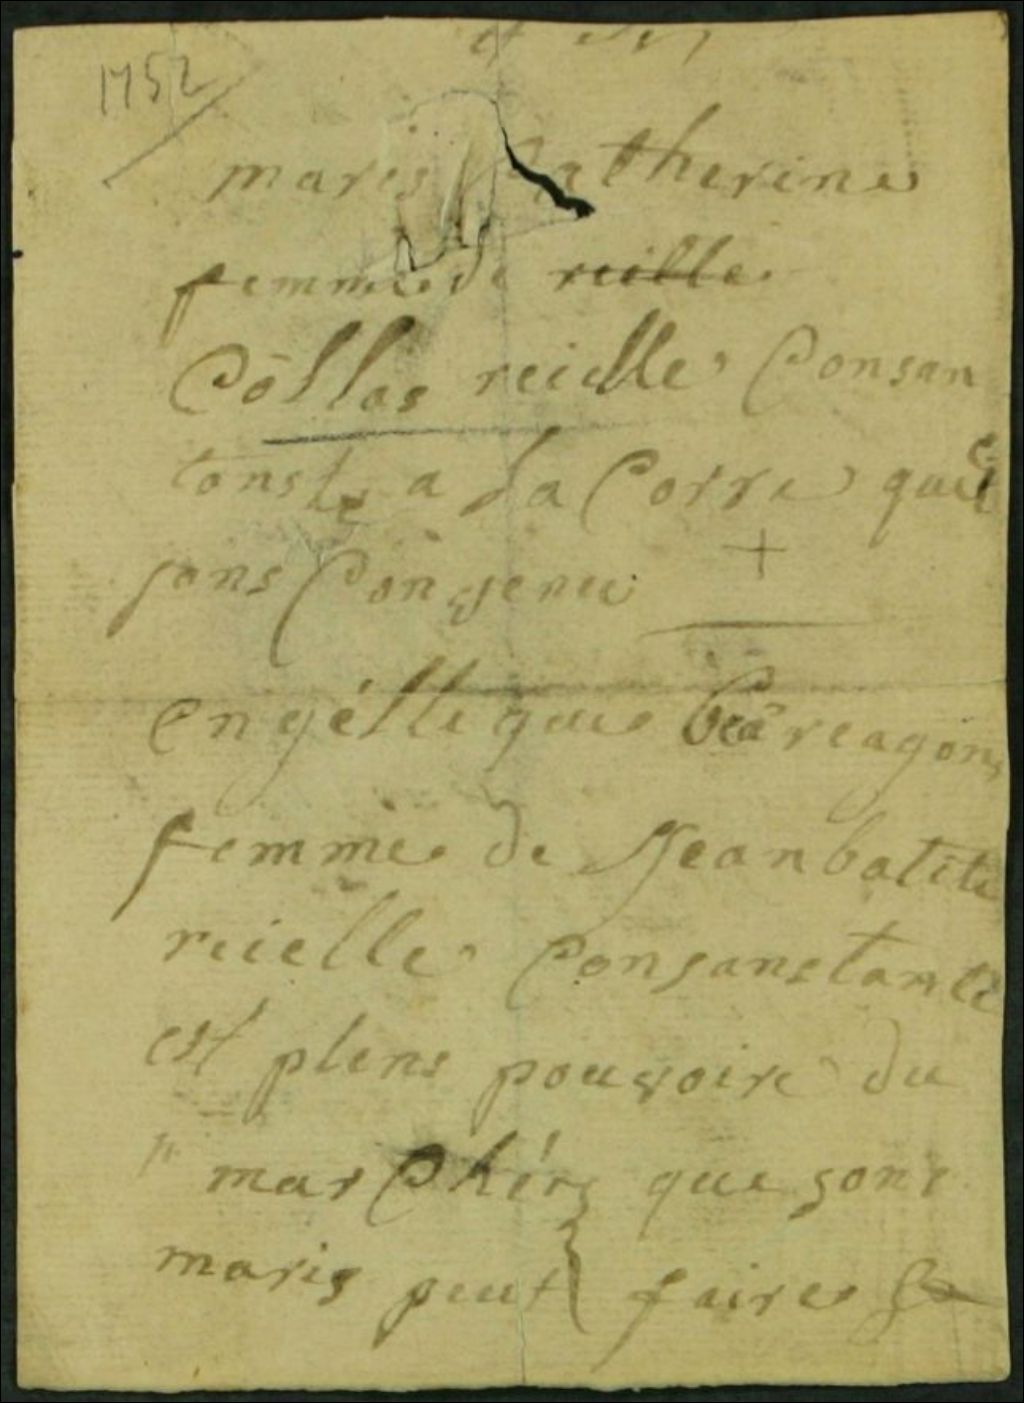 1752
maris Catherine
femme de reille
Côllas reielle Consan
tonst a la Corre quil
sons Convenu +
engélligue Careagons
femme de Jeanbatite
reielle Consanstante
est plens pouvoire du
marChérs que sons
maris peut faire